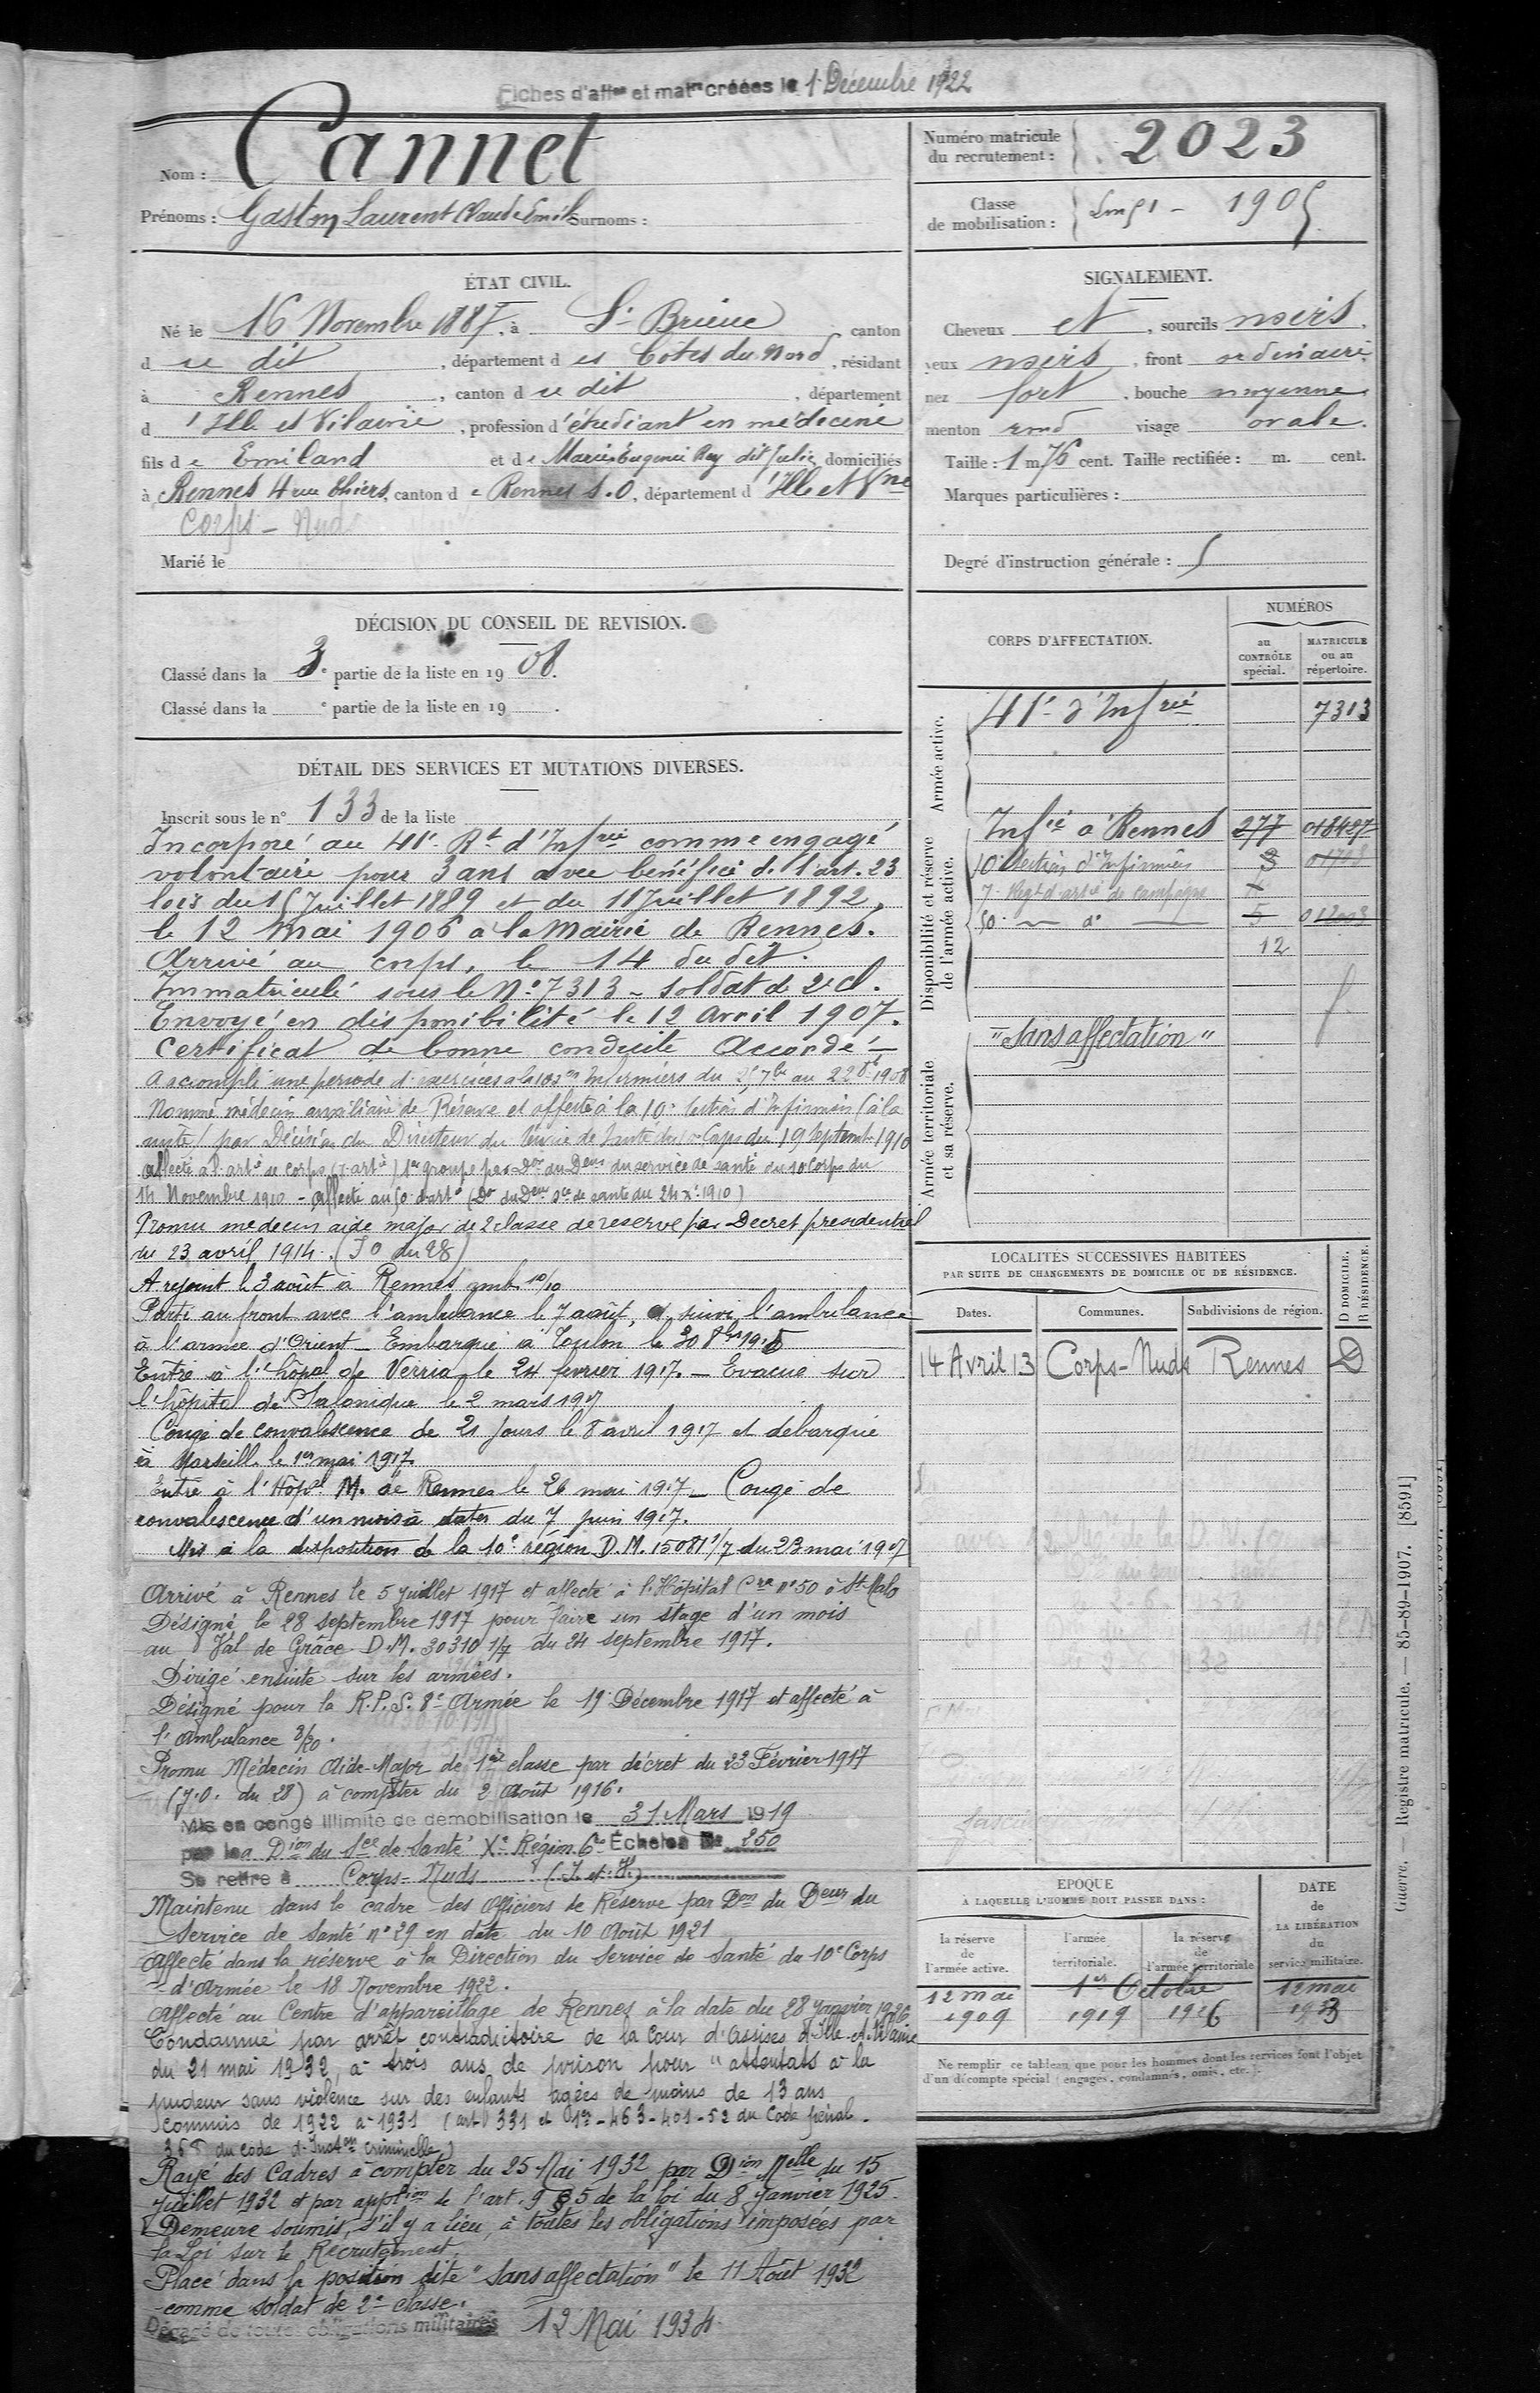 Fiches d'aff<sup>on</sup> et mat<sup>le</sup> créées le 1 Décembre 1922
Nom : Cannet
Prénoms : Gaston Laurent Claude Emile Surnoms :
Numéro matricule du recrutement : 2023
Classe de mobilisation : 1905
ÉTAT CIVIL.
Né le 16 Novembre 1887, à St Brieuc canton
d ce dit, département d es Côtes du Nord, résidant
à Rennes, canton d ce dit, département
d 'Ille et Vilaine, profession d'étudiant en médecine
fils d e Emiland et d e Marie Eugénie Rey dit Julie, domiciliés
à Rennes 4 rue Thiers, canton d e Rennes S.O, département d 'Ille et Vne
Corps-Nuds
Marié le
SIGNALEMENT.
Cheveux et, sourcils noirs,
yeux noirs, front ordinaire,
nez fort, bouche moyenne
menton rond visage ovale.
Taille : 1 m 76 cent. Taille rectifiée : m. cent.
Marques particulières :
Degré d'instruction générale : 5
DÉCISION DU CONSEIL DE REVISION.
Classé dans la 3e partie de la liste en 1908.
Classé dans la e partie de la liste en 19 .
DÉTAIL DES SERVICES ET MUTATIONS DIVERSES.
Inscrit sous le n° 133 de la liste
Incorporé au 41e Rt d'Infrie comme engagé
volontaire pour 3 ans avec bénéfice de l'art. 23
lois du 15 Juillet 1889 et du 11 Juillet 1892,
le 12 Mai 1906 à la Mairie de Rennes.
Arrivé au corps, le 14 du dit.
Immatriculé sous le N° 7313 - Soldat de 2e cl.
Envoyé en disponibilité le 12 Avril 1907.
Certificat de bonne conduite Accordé -
A accompli une période d'exercices à la 10e son Infirmiers du 25 7bre au 22 8bre 1908
Nommé médecin auxiliaire de Réserve et affecté à la 10e Section d'Infirmiers (à la
suite) par Décision du Directeur du Service de Santé du 10e Corps du 19 Septemb. 1910
Affecté à l'artie de corps (7e artie) 1er groupe par Don du Deur du service de santé du 10 Corps du
14 Novembre 1910 - Affecté au 50e d'artie (Don du Deur Sce de santé du 24 Xe 1910)
Promu médecin aide major de 2 classe de réserve par Décret présidentiel
du 23 avril 1914. (J O du 28)
A rejoint le 3 août à Rennes amb. 10/10
Parti au front avec l'ambulance le 7 août, a suivi l'ambulance
à l'armée d'Orient - Embarqué à Toulon le 30 8bre 1915
Entré à l'hôpal de Verria le 24 février 1917. - Evacué sur
l'hôpital de Salonique le 2 mars 1917
Congé de convalescence de 21 jours le 8 avril 1917 et débarqué
à Marseille le 1er mai 1917.
Entré à l'Hôpal M. de Rennes le 26 mai 1917 - Congé de
convalescence d'un mois à dater du 7 juin 1917.
Mis à la disposition de la 10e région D.M. 15081 1/7 du 23 mai 1917
Arrivé à Rennes le 5 juillet 1917 et affecté à l'Hôpital Cre n° 50 à St-Malo
Désigné le 28 septembre 1917 pour faire un stage d'un mois
au Val de Grâce D.M. 30310 1/7 du 24 septembre 1917.
Dirigé ensuite sur les armées.
Désigné pour la R.P.S. 8e Armée le 19 Décembre 1917 et affecté à
l'ambulance 3/20.
Promu Médecin Aide-Major de 1ère classe par décret du 23 Février 1917
(J.O. du 28) à compter du 2 Août 1916.
Mis en congé illimité de démobilisation le 31 Mars 1919
par la Dion du Sce de Santé Xe Région 6e Échelon N° 250
Se retire à Corps-Nuds (I. et V.)
Maintenu dans le cadre des Officiers de Réserve par Don du Deur du
Service de Santé n° 29 en date du 10 Août 1921
Affecté dans la réserve à la Direction du Service de Santé du 10e Corps
d'Armée le 18 Novembre 1922.
Affecté au Centre d'appareillage de Rennes à la date du 28 Janvier 1926
Condamné par arrêt contradictoire de la Cour d'Assises d'Ille-et-Vilaine
du 21 mai 1932, à trois ans de prison pour "attentats à la
pudeur sans violence sur des enfants âgées de moins de 13 ans
commis de 1922 à 1931 (art) 331 et 1er - 463 - 401 - 52 du Code pénal.
368 du code d'Inston criminelle)
Rayé des Cadres à compter du 25 Mai 1932 par Dion Melle du 15
Juillet 1932 et par appltion de l'art. 9 § 5 de la loi du 8 Janvier 1925.
Demeure soumis, s'il y a lieu, à toutes les obligations imposées par
la Loi sur le Recrutement.
Placé dans la position dite "Sans affectation" le 11 Août 1932
comme soldat de 2e classe.
Dégagé de toutes obligations militaires 12 Mai 1934
CORPS D'AFFECTATION.
NUMÉROS
au CONTRÔLE spécial.
MATRICULE ou au répertoire.
Armée active.
41e d'Infrie 7313
Disponibilité et réserve de l'armée active.
Infie à Rennes 277 018427
10e Section d'Infirmiers 3
7e Regt d'artie de campagne
50e - d° - 5
12
Armée territoriale et sa réserve.
"Sans affectation"
LOCALITÉS SUCCESSIVES HABITÉES
PAR SUITE DE CHANGEMENTS DE DOMICILE OU DE RÉSIDENCE.
D DOMICILE.
R RÉSIDENCE.
Dates. Communes. Subdivisions de région.
14 Avril 13 Corps-Nuds Rennes D
ÉPOQUE
À LAQUELLE L'HOMME DOIT PASSER DANS :
DATE de LA LIBÉRATION du service militaire.
la réserve de l'armée active.
l'armée territoriale.
la réserve de l'armée territoriale
12 mai 1909
1er Octobre
1919 1926
12 mai 1933
Ne remplir ce tableau que pour les hommes dont les services font l'objet
d'un décompte spécial (engagés, condamnés, omis, etc.).
Guerre. — Registre matricule. — 85-89-1907. [8591]